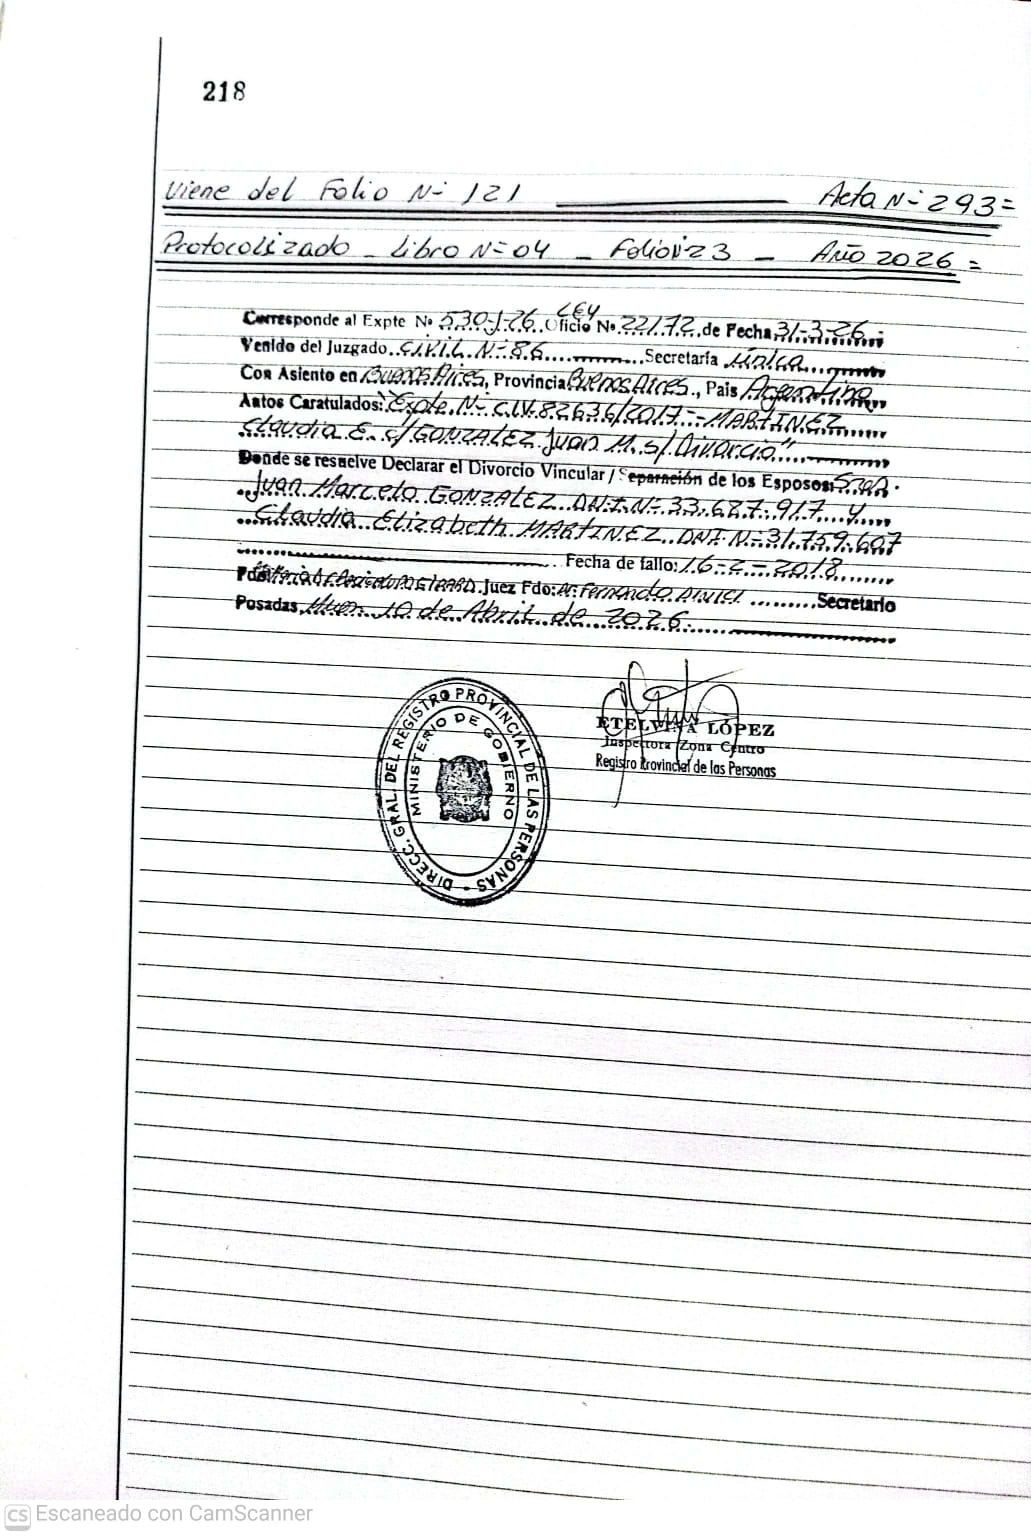 218
Viene del Folio Nº 121 Acta Nº 293=
Protocolizado - Libro Nº 04 - Folio Nº 23 - Año 2026 =
LEY
Corresponde al Expte Nº 530-J-26. Oficio Nº 22172 de Fecha 31-3-26
Venido del Juzgado CIVIL Nº 86 Secretaría única
Con Asiento en Buenos Aires, Provincia Buenos Aires., Pais Argentina
Autos Caratulados: "Expte. Nº CIV. 82636/2017 - MARTINEZ
Claudia E. c/ GONZALEZ Juan M. s/ Divorcio"
Donde se resuelve Declarar el Divorcio Vincular / Separación de los Esposos: Sres.
Juan Marcelo GONZALEZ DNI Nº 33.687.917 y
Claudia Elizabeth MARTINEZ DNI Nº 31.759.607
Fecha de fallo: 16-2-2018
Juez Fdo: Fernando Secretario
Posadas, 10 de Abril de 2026.
ETELVINA LÓPEZ
Inspectora Zona Centro
Registro Provincial de las Personas
DIRECC. GRAL. DEL REGISTRO PROVINCIAL DE LAS PERSONAS -
MINISTERIO DE GOBIERNO
CS Escaneado con CamScanner